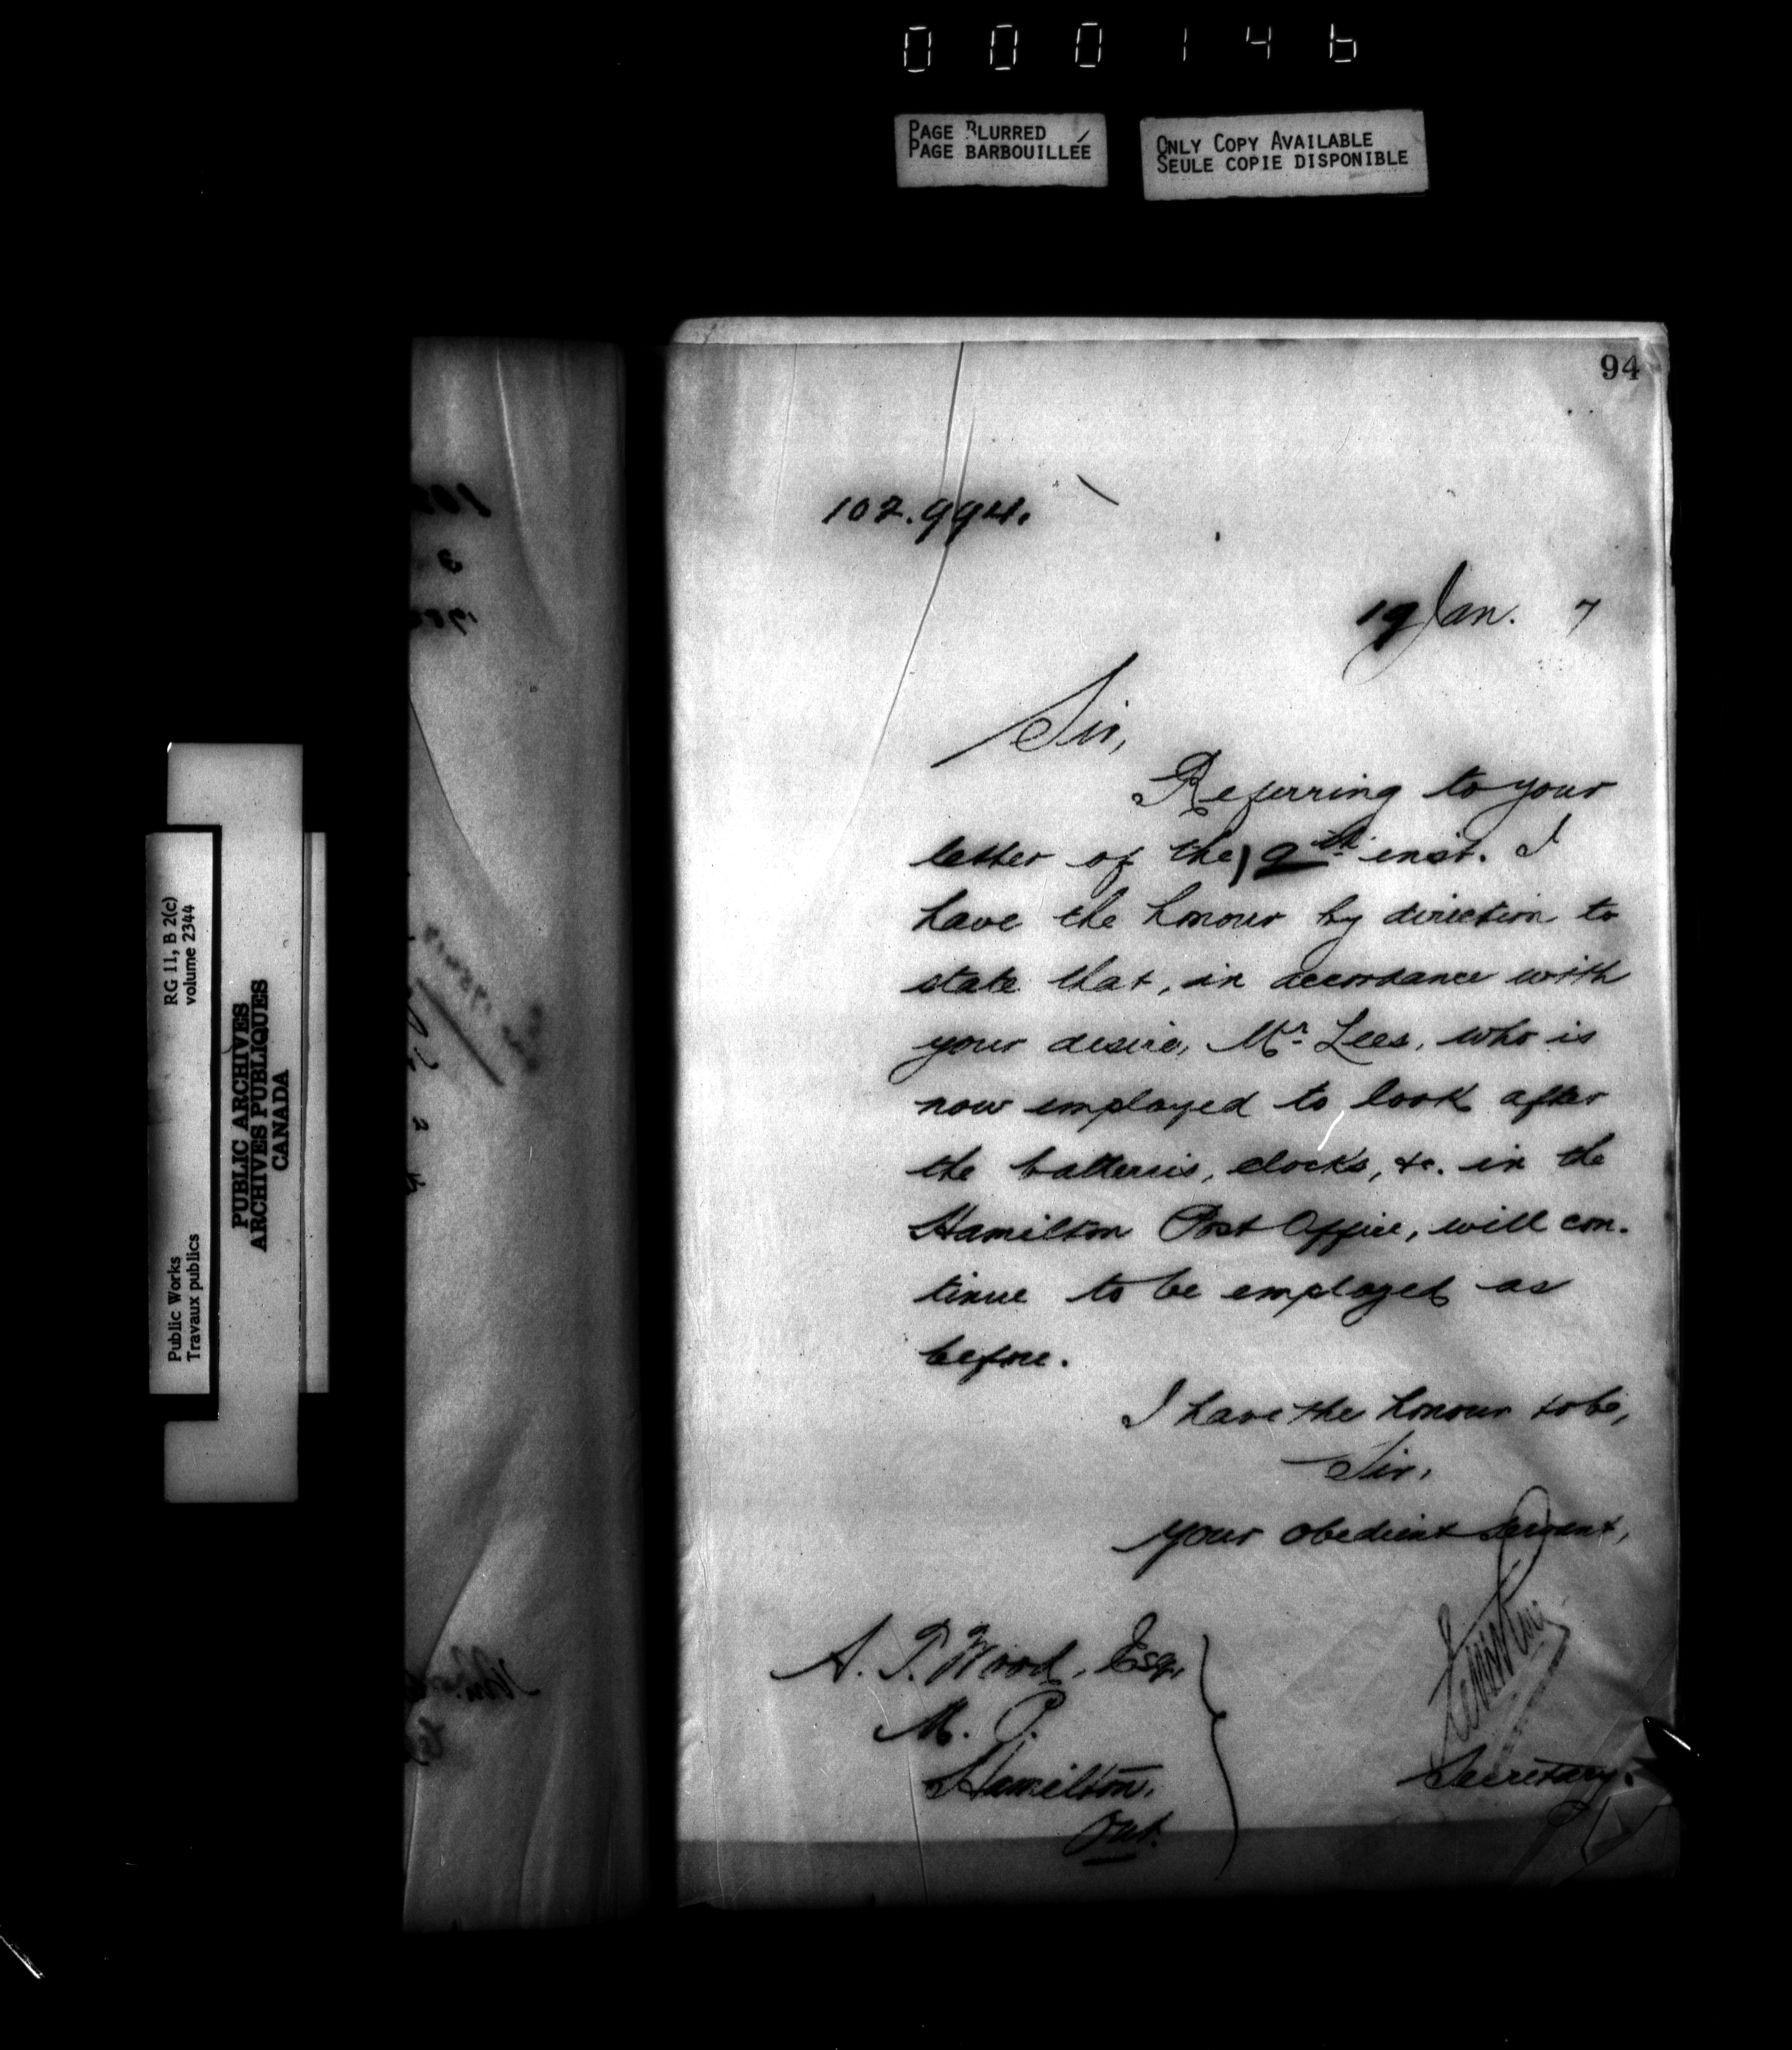 000146
PAGE BLURRED
PAGE BARBOUILLÉE
ONLY COPY AVAILABLE
SEULE COPIE DISPONIBLE
94
102.994.
19 Jan. 7
Sir,
Referring to your
letter of the 9th inst. I
have the honour by direction to
state that, in accordance with
your desire, Mr Lees, who is
now employed to look after
the batteries, clocks, &c. in the
Hamilton Post Office, will con-
tinue to be employed as
before.
I have the honour to be,
Sir,
Your obedient servant,
A. T. Wood, Esq.
M. P.
Hamilton.
Ont.
Secretary.
RG 11, B 2(c)
volume 2344
Public Works
Travaux publics
PUBLIC ARCHIVES
ARCHIVES PUBLIQUES
CANADA